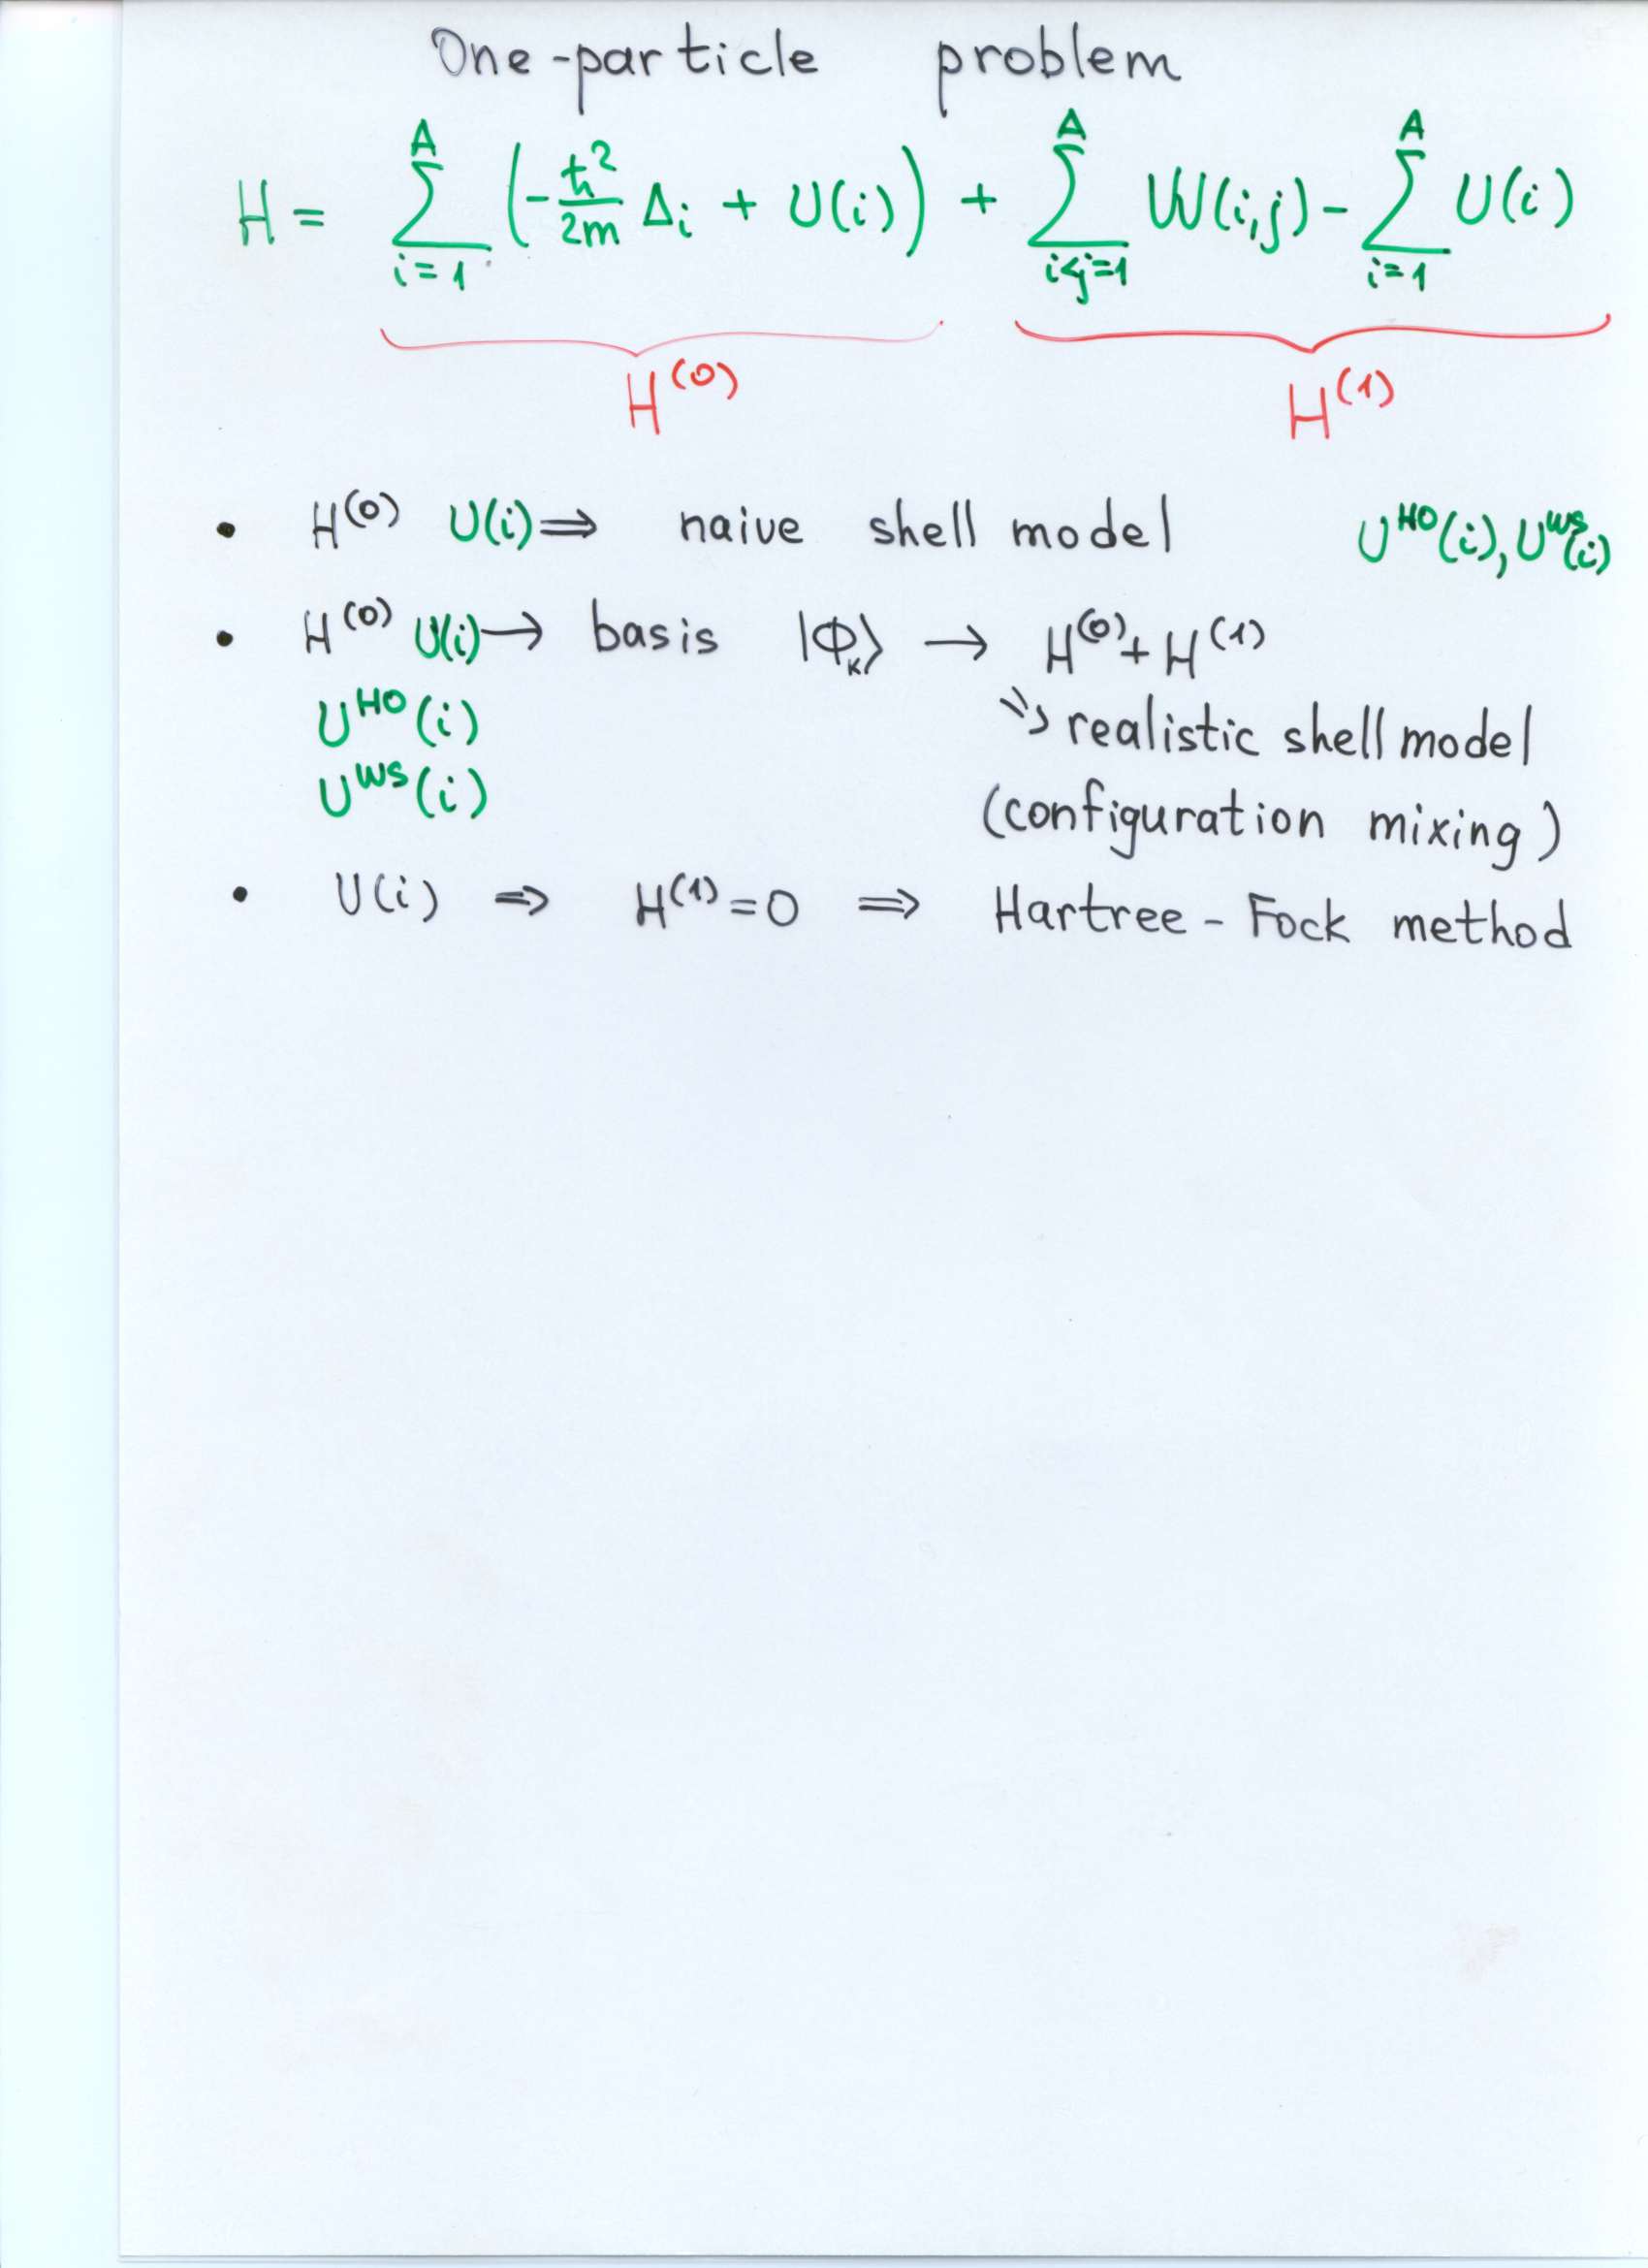 One-particle problem
H = \sum_{i=1}^{A} \left( -\frac{\hbar^2}{2m} \Delta_i + U(i) \right) + \sum_{i<j=1}^{A} W(i,j) - \sum_{i=1}^{A} U(i)
H^{(0)} H^{(1)}
• H^{(0)} U(i) ⇒ naive shell model U^{HO}(i), U^{WS}(i)
• H^{(0)} U(i) → basis |Φ_k⟩ → H^{(0)} + H^{(1)}
U^{HO}(i) ⇘ realistic shell model
U^{WS}(i) (configuration mixing)
• U(i) ⇒ H^{(1)} = 0 ⇒ Hartree - Fock method